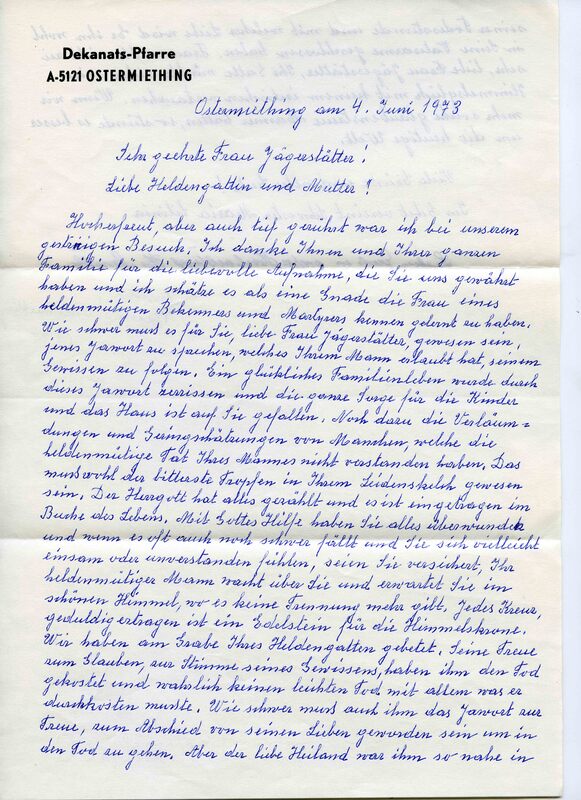 Dekanats-Pfarre
A-5121 OSTERMIETHING
Ostermiething am 4. Juni 1973
Sehr geehrte Frau Jägerstätter!
Liebe Heldengattin und Mutter!
Hocherfreut, aber auch tief gerührt war ich bei unserem
gestrigen Besuch. Ich danke Ihnen und Ihrer ganzen
Familie für die liebevolle Aufnahme, die Sie uns gewährt
haben und ich schätze es als eine Gnade die Frau eines
heldenmütigen Bekenners und Martyrers kennen gelernt zu haben.
Wie schwer muss es für Sie, liebe Frau Jägerstätter, gewesen sein,
jenes Jawort zu sprechen, welches Ihrem Mann erlaubt hat, seinem
Gewissen zu folgen. Ein glückliches Familienleben wurde durch
dieses Jawort zerrissen und die ganze Sorge für die Kinder
und das Haus ist auf Sie gefallen. Noch dazu die Verläum=
dungen und Geringschätzungen von Manchen, welche die
heldenmütige Tat Ihres Mannes nicht verstanden haben. Das
muss wohl der bitterste Tropfen in Ihrem Leidenskelch gewesen
sein. Der Herrgott hat alles gezählt und es ist eingetragen im
Buche des Lebens. Mit Gottes Hilfe haben Sie alles überwunden
und wenn es oft auch noch schwer fällt und Sie sich vielleicht
einsam oder unverstanden fühlen, seien Sie versichert, Ihr
heldenmütiger Mann wacht über Sie und erwartet Sie im
schönen Himmel, wo es keine Trennung mehr gibt. Jedes Kreuz,
geduldig ertragen ist ein Edelstein für die Himmelskrone.
Wir haben am Grabe Ihres Heldengatten gebetet. Seine Treue
zum Glauben, zur Stimme seines Gewissens, haben ihm den Tod
gekostet und wahrlich keinen leichten Tod mit allem was er
durchkosten musste. Wie schwer muss auch ihm das Jawort zur
Treue, zum Abschied von seinen Lieben geworden sein um in
den Tod zu gehen. Aber der liebe Heiland war ihm so nahe in